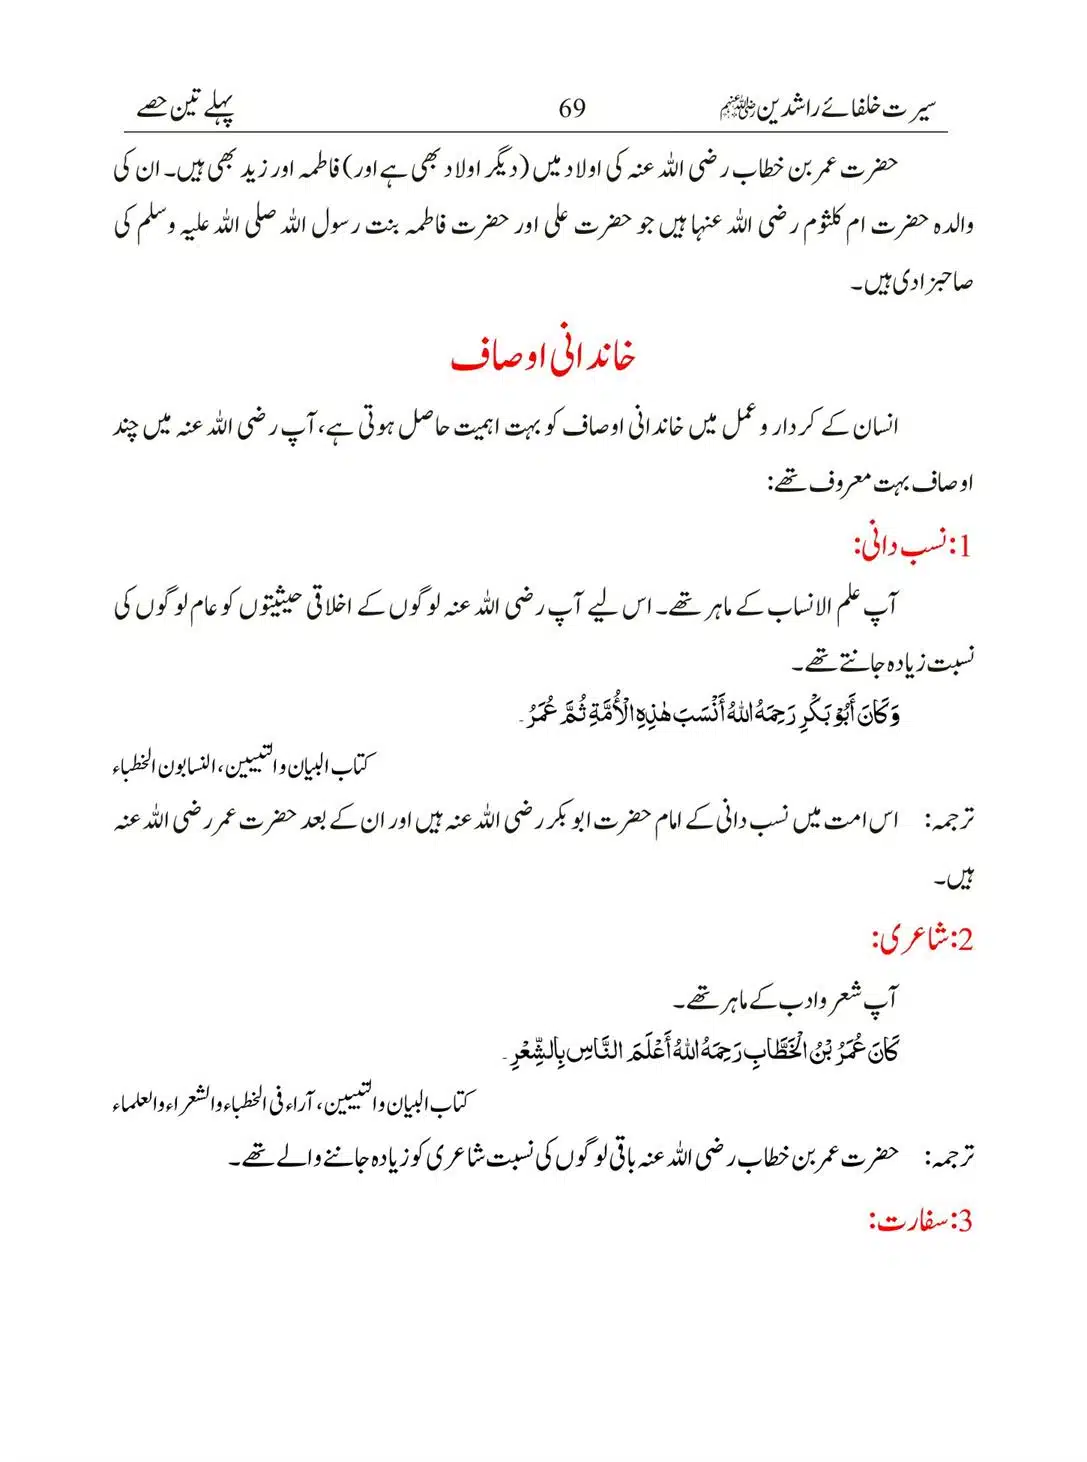 سیرت خلفائے راشدین رضی اللہ عنہم 69 پہلے تین حصے
حضرت عمر بن خطاب رضی اللہ عنہ کی اولاد میں (دیگر اولاد بھی ہے اور) فاطمہ اور زید بھی ہیں۔ ان کی
والدہ حضرت ام کلثوم رضی اللہ عنہا ہیں جو حضرت علی اور حضرت فاطمہ بنت رسول اللہ صلی اللہ علیہ وسلم کی
صاحبزادی ہیں۔
خاندانی اوصاف
انسان کے کردار و عمل میں خاندانی اوصاف کو بہت اہمیت حاصل ہوتی ہے، آپ رضی اللہ عنہ میں چند
اوصاف بہت معروف تھے:
1: نسب دانی:
آپ علم الانساب کے ماہر تھے۔ اس لیے آپ رضی اللہ عنہ لوگوں کے اخلاقی حیثیتوں کو عام لوگوں کی
نسبت زیادہ جانتے تھے۔
وَكَانَ أَبُوْ بَكْرٍ رَحِمَهُ اللهُ أَنْسَبَ هٰذِهِ الْأُمَّةِ ثُمَّ عُمَرُ۔
کتاب البیان والتبیین، النسابون الخطباء
ترجمہ: اس امت میں نسب دانی کے امام حضرت ابو بکر رضی اللہ عنہ ہیں اور ان کے بعد حضرت عمر رضی اللہ عنہ
ہیں۔
2: شاعری:
آپ شعر و ادب کے ماہر تھے۔
كَانَ عُمَرُ بْنُ الْخَطَّابِ رَحِمَهُ اللهُ أَعْلَمَ النَّاسِ بِالشِّعْرِ۔
کتاب البیان والتبیین، آراء فی الخطباء والشعراء والعلماء
ترجمہ: حضرت عمر بن خطاب رضی اللہ عنہ باقی لوگوں کی نسبت شاعری کو زیادہ جاننے والے تھے۔
3: سفارت: